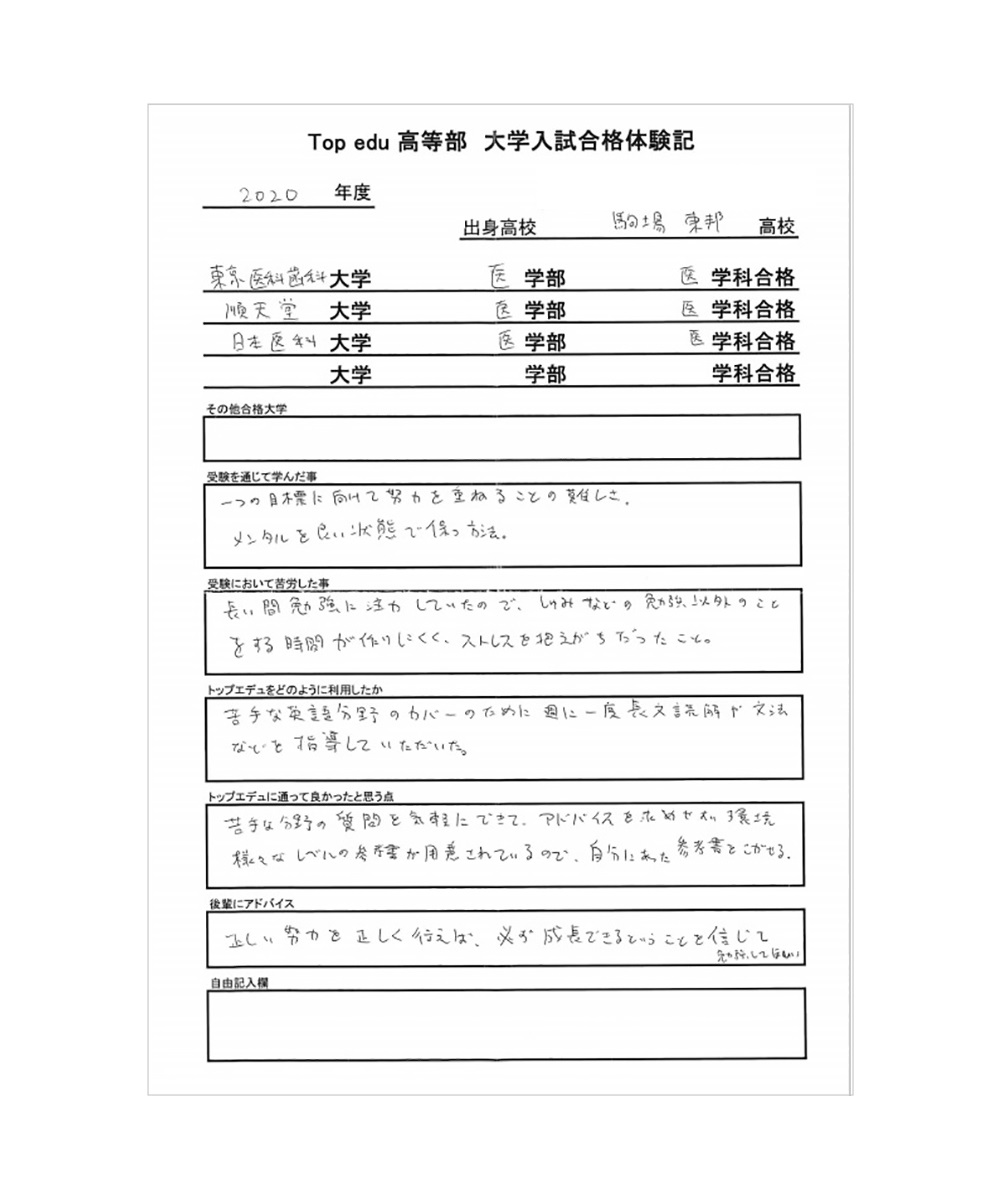 Top edu 高等部 大学入試合格体験記
2020 年度
出身高校 駒場東邦 高校
東京医科歯科大学 医 学部 医 学科合格
順天堂 大学 医 学部 医 学科合格
日本医科 大学 医 学部 医 学科合格
大学 学部 学科合格
その他合格大学
受験を通じて学んだ事
一つの目標に向けて努力を重ねることの難しさ。
メンタルを良い状態で保つ方法。
受験において苦労した事
長い間勉強に注力していたので、しゅみなどの勉強以外のこと
をする時間が作りにくく、ストレスを抱えがちだったこと。
トップエデュをどのように利用したか
苦手な英語分野のカバーのために週に一度長文読解や文法
などを指導していただいた。
トップエデュに通って良かったと思う点
苦手な分野の質問を気軽にできて、アドバイスを求めやすい環境
様々なレベルの参考書が用意されているので、自分にあった参考書をさがせる。
後輩にアドバイス
正しい努力を正しく行えば、必ず成長できるということを信じて
勉強してほしい
自由記入欄